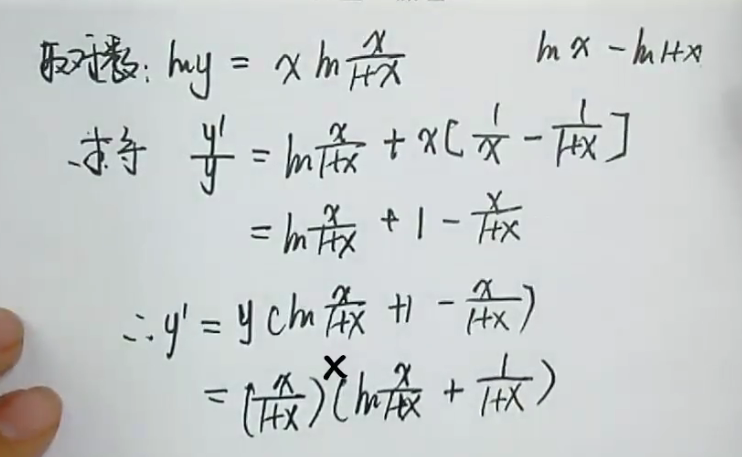 取对数: ln y = x ln x/(1+x)    ln x - ln 1+x
求导 y'/y = ln x/(1+x) + x[1/x - 1/(1+x)]
= ln x/(1+x) + 1 - x/(1+x)
∴ y' = y(ln x/(1+x) + 1 - x/(1+x))
= (x/(1+x))^x (ln x/(1+x) + 1/(1+x))